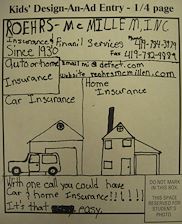 Kids' Design-An-Ad Entry - 1/4 page
ROEHRS-McMILLEM, INC
Insurance & Finail Services
Since 1930
Phone 419-784-3979
Fax 419-782-9979
Auto or home
Insurance
Email
website roehrsmcmillen.com
Car Insurance
Home
Insurance
With one call you could have
Car & home Insurance!!!!
It's that easy.
DO NOT MARK
IN THIS BOX
THIS SPACE
RESERVED FOR
STUDENT'S
PHOTO